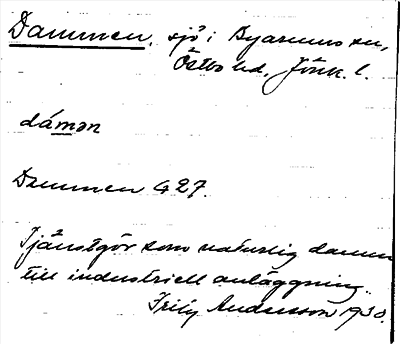 Dammen, sjö i Byarums sn,
Östbo hd, Jönk. l.
dámən
Dammen G 27.
Tjänstgör som naturlig damm
till industriell anläggning.
Fritz Andersson 1930.